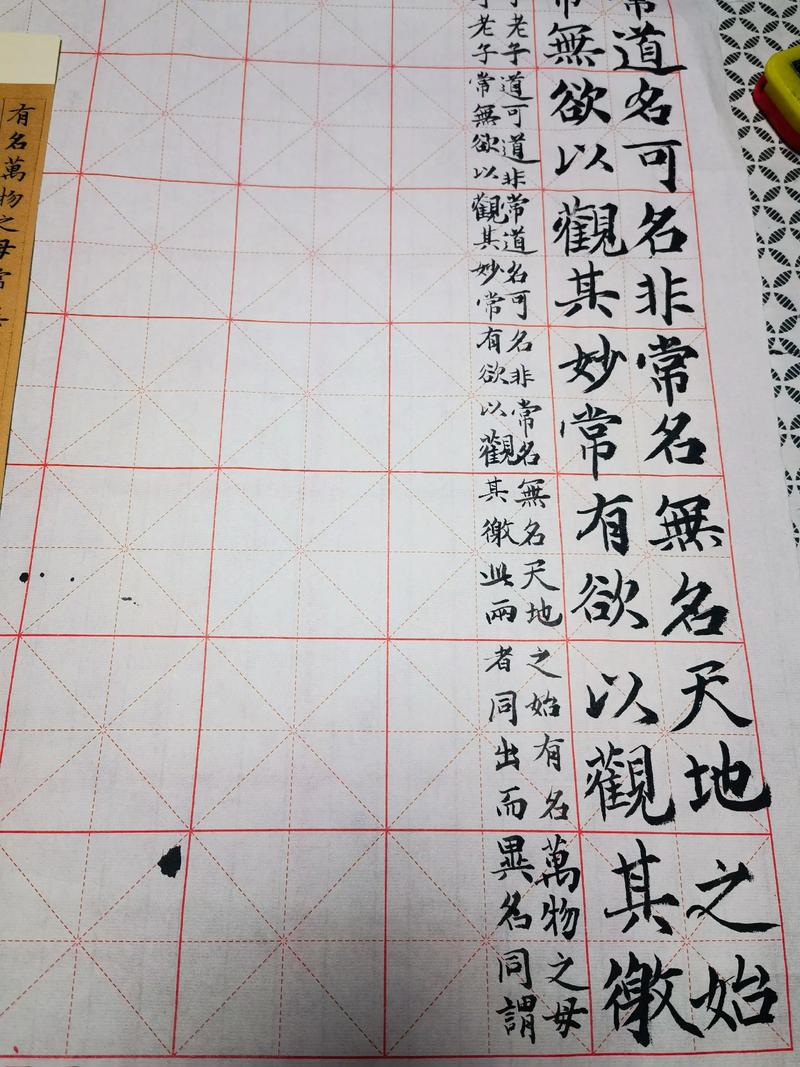 常道名可名非常名無名天地之始
常無欲以觀其妙常有欲以觀其徼
子老子道可道非常道名可名非常名無名天地之始有名萬物之母
子老子常無欲以觀其妙常有欲以觀其徼此兩者同出而異名同謂
有名萬物之母常